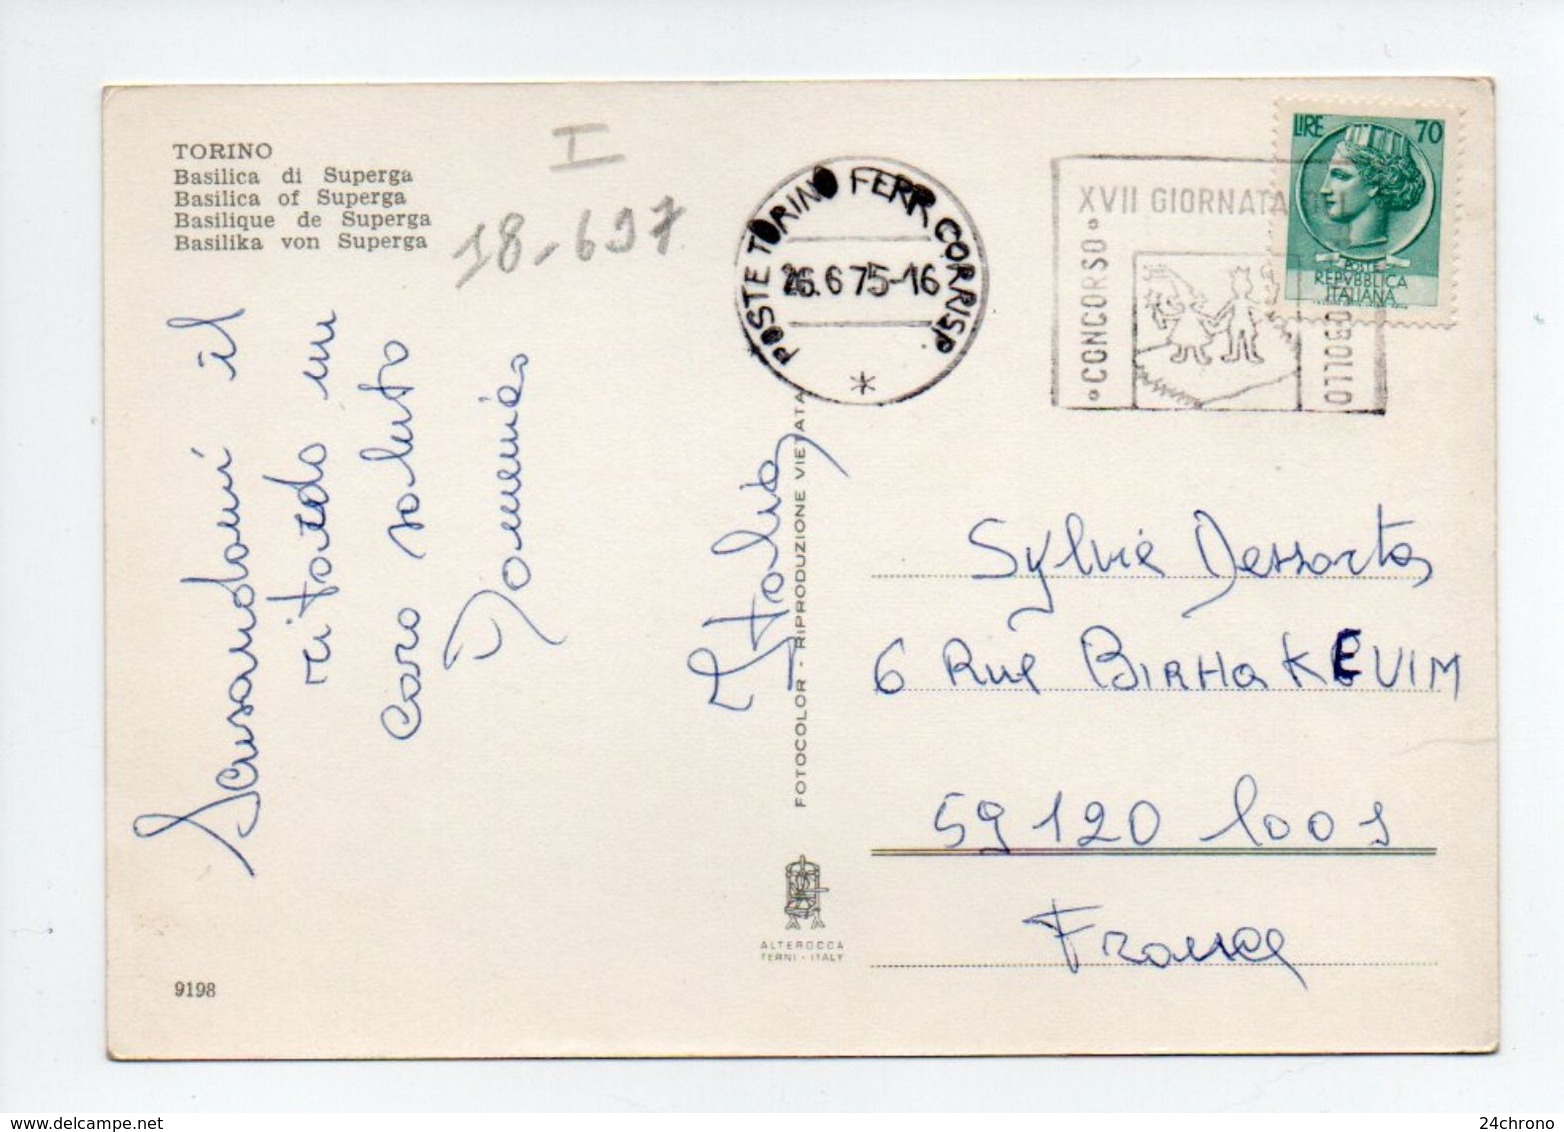 TORINO
Basilica di Superga
Basilica of Superga
Basilique de Superga
Basilika von Superga
I
18-697
Scusandomi il
ritardo un
caro saluto
POSTE TORINO FERR CORRISP
26.6 75-16
*
XVII GIORNATA DEL
CONCORSO
LIRE 70
POSTE
REPVBBLICA
ITALIANA
FOTOCOLOR - RIPRODUZIONE VIETATA
Sylvie
6 Rue BIRHaKEVIM
59120 loos
France
ALTEROCCA
TERNI - ITALY
9198
24chrono